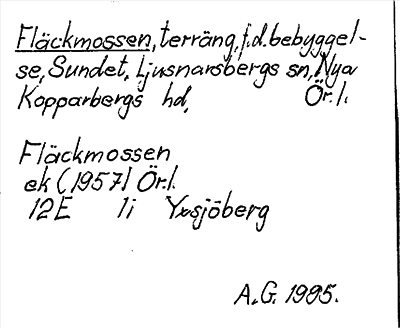 Fläckmossen, terräng, f.d. bebyggel-
se, Sundet, Ljusnarsbergs sn, Nya
Kopparbergs hd, Ör.l.
Fläckmossen
ek (1957) Ör.l.
12E 1i Yxsjöberg
A.G. 1985.